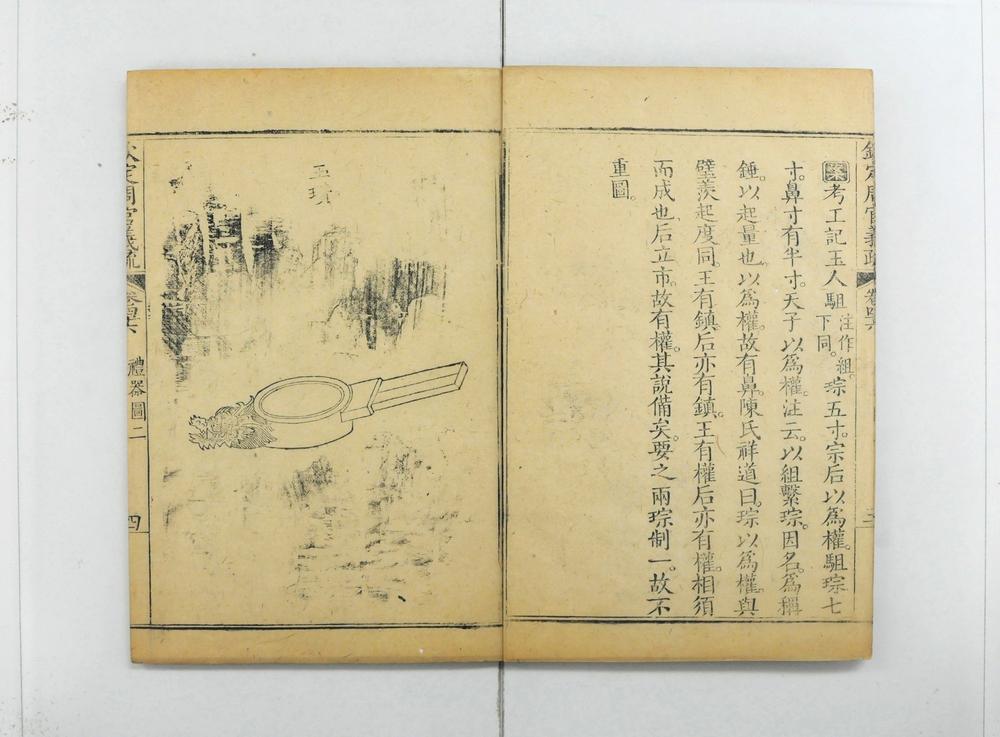 欽定周官義疏 卷四十六 三
案考工記玉人駔注作組下同。琮五寸。宗后以爲權。駔琮七
寸。鼻寸有半寸。天子以爲權。注云。以組繫琮。因名。爲稱
錘。以起量也。以爲權。故有鼻。陳氏祥道曰。琮以爲權。與
璧羨起度同。王有鎮。后亦有鎮。王有權。后亦有權。相須
而成也。后立市。故有權。其說備矣。要之兩琮制一。故不
重圖。
玉瓚
欽定周官義疏 卷四十六 禮器圖二 四